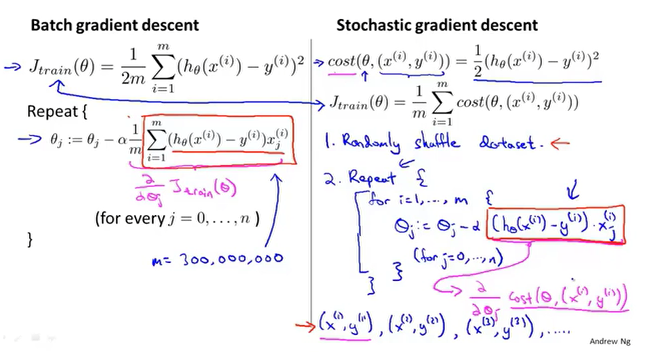 Batch gradient descent
→ J_train(θ) = 1/2m ∑_{i=1}^{m} (h_θ(x^(i)) − y^(i))²
Repeat {
→ θ_j := θ_j − α 1/m ∑_{i=1}^{m} (h_θ(x^(i)) − y^(i))x_j^(i)
∂/∂θ_j J_train(θ)
(for every j = 0, . . . , n )
}
m = 300,000,000
Stochastic gradient descent
→ cost(θ, (x^(i), y^(i))) = 1/2 (h_θ(x^(i)) − y^(i))²
J_train(θ) = 1/m ∑_{i=1}^{m} cost(θ, (x^(i), y^(i)))
1. Randomly shuffle dataset. ←
2. Repeat {
for i=1, ..., m {
θ_j := θ_j − α (h_θ(x^(i)) − y^(i)) · x_j^(i)
(for j=0, ..., n)
}
}
∂/∂θ_j cost(θ, (x^(i), y^(i)))
→ (x^(1), y^(1)), (x^(2), y^(2)), (x^(3), y^(3)), .....
Andrew Ng